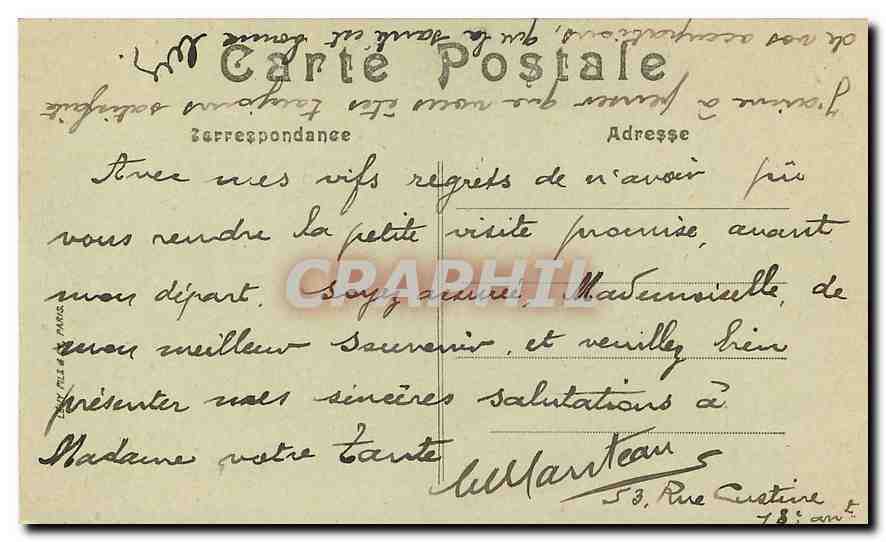 Carte Postale
Correspondance
Adresse
Avec mes vifs regrets de n'avoir pû
vous rendre la petite visite promise, avant
mon départ, soyez assurée, Mademoiselle, de
mon meilleur souvenir, et veuillez bien
présenter mes sincères salutations à
Madame votre tante
53, Rue Custine
18e arrt
J'aime à penser que vous êtes toujours satisfaite
de vos occupations, que la santé est bonne
LEVY FILS & Cie PARIS.
CRAPHIL